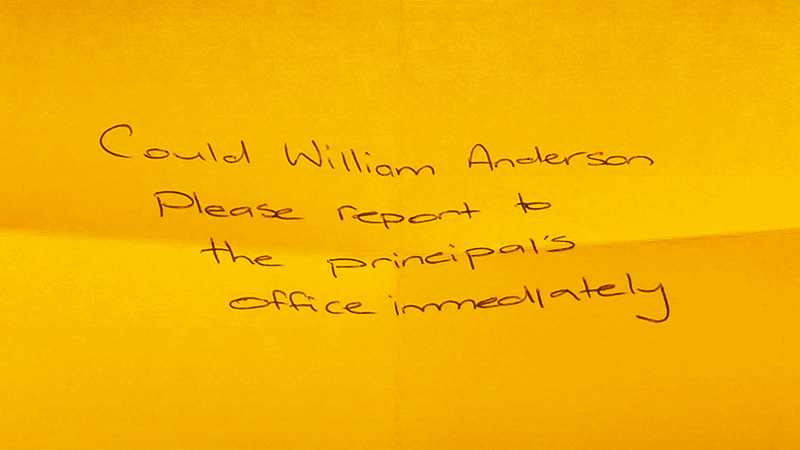 Could William Anderson
Please report to
the principal's
office immediately